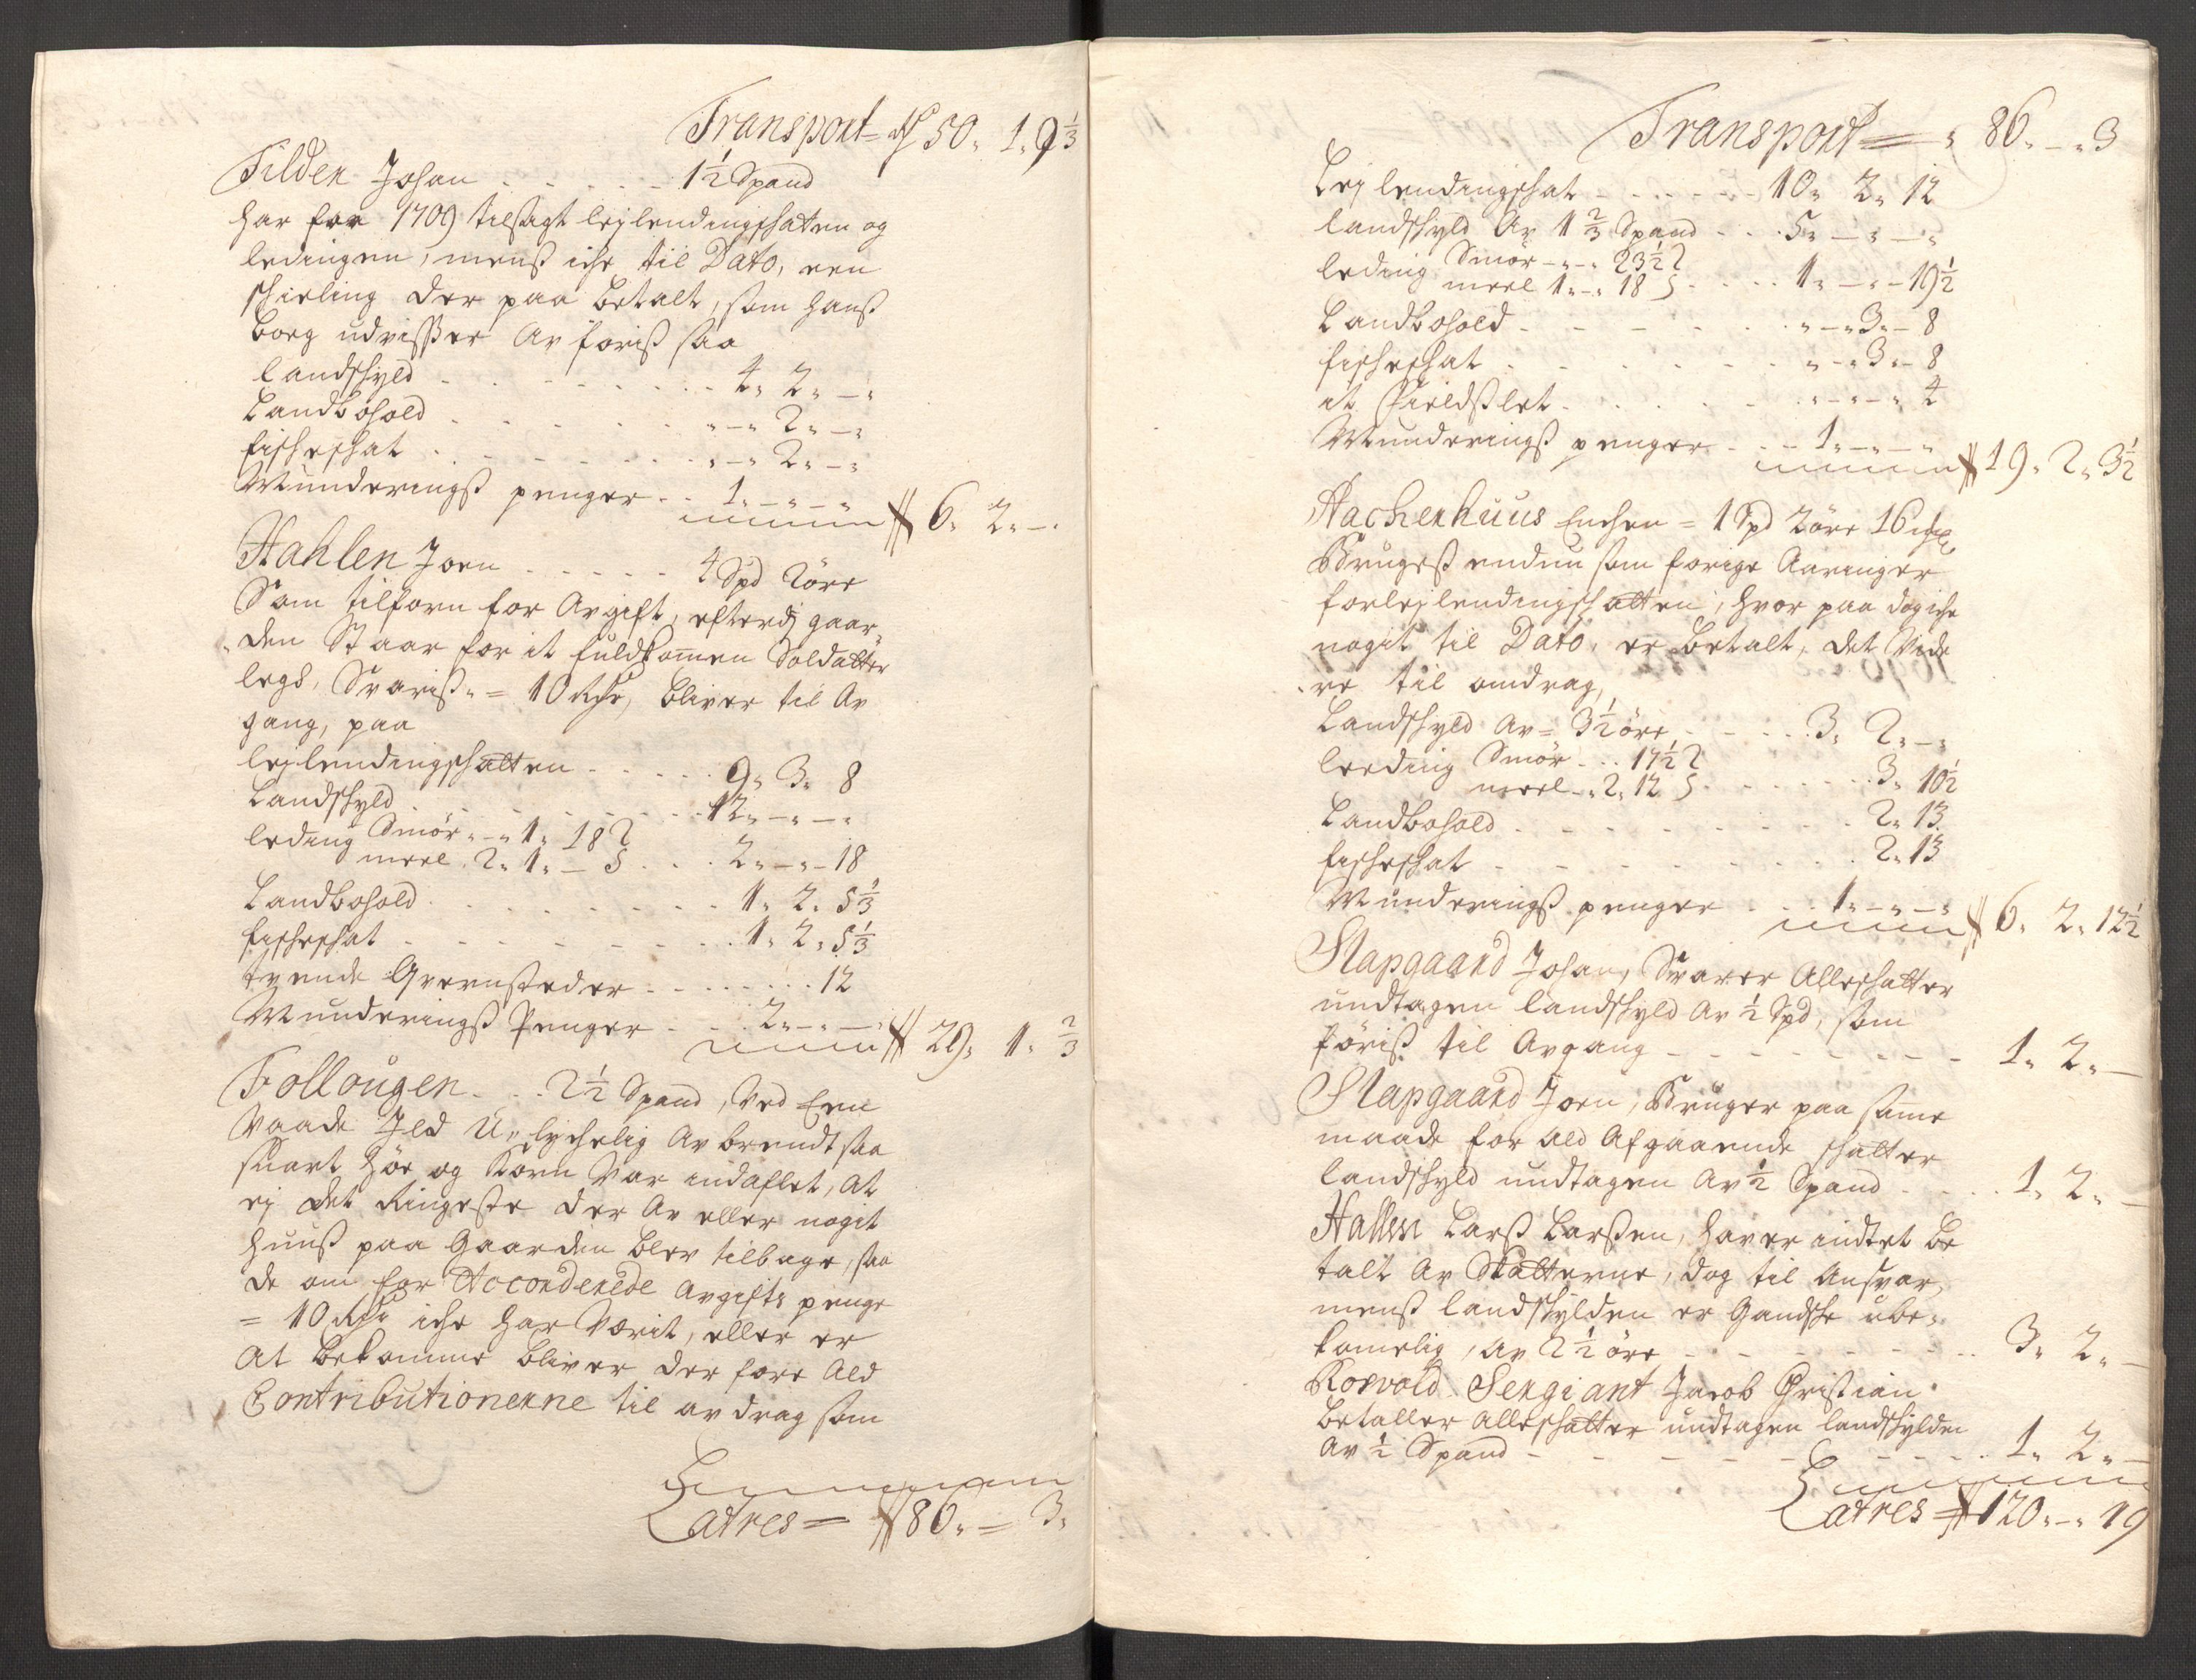 Transport = 50. 1. 9 1/3
Tilden Johan - - - - - 1 1/2 Spand
har for 1709 tilsagt lejlendingschatten og
ledingen, menß iche til Dato, een
schieling der paa betalt, som hanß
borg udvisser Av føriß saa
landschyld - - - - - 4. 2. -.
Landbohold - - - - - ". - " 2. -.
fischeschat - - - - - ". - " 2. -.
Munderingß penger - - 1. -. -. 6. 2. -.
Stahlen Joen - - - - - 4 Spd 2 öre
Som tilforn for Avgift, efterdj gaar¬
den Staar for it fuldkomen Soldatter
legd, Svariß = 10 Rdr, bliver til Av
gang, paa
lejlendingschatten - - - - 9. 3. 8
Landschyld - - - - - 12. -. -.
leding Smör. -. 1. 18
meel. 2. 1. - - - - 2. -. - 18
Landbohold - - - - - 1. 2. 5 1/3
fischeschat - - - - - 1. 2. 5 1/3
tvende Qvernsteder - - - - 12
Munderingß Penger - - 2. -. -. 29. 1. 2/3
Follougen - - 2 1/2 Spand, Ved Een
Vaade Ild U¬lychelig Av brendt saa
snart Höe og Korn Var indaflet, At
ej det Ringeste der Av eller nogit
Huuß paa Gaarden blev tilbage, saa
de om for Accorderede Avgifts penge
= 10 Rdr iche har Værit, eller er
At bekomme bliver der fore Ald
Contributionerne til avdrag som
Latres = 86. = 3.
Transport = 86. - . 3
Lejlendingschat - - - - - 10. 2. 12
landschyld Av 1 2/3 Spand - - 5. -. -.
leding Smör -. -. 23 1/2
meel 1. -. 18 - - - - 1. -. - 19 1/2
Landbohold - - - - - ". - . 3. - 8
fischeschat - - - - - ". - . 3. - 8
it Fieldslet - - - - - ". -. -. 4
Munderingß penger - - - 1. -. -. 19. 2. 3 1/2
Hachenhuus Enchen = 1 Spd 2 öre 16
Brugeß endnu som forige Aaringer
for lejlendingschatten, hvor paa dog iche
nogit til Dato, er betalt, det Vide
re til omdrag,
Landschyld Av = 3 1/2 öre - - - 3. 2. -.
leeding Smör - - 17 1/2
meel -. 2. 12 - - - - 3. 10 1/2
Landbohold - - - - - 2. 13
fischeschat - - - - - 2. 13
Munderingß penger - - - 1. -. -. 6. 2. 12 1/2
Slapgaard Johan, Svarer Alleschatter
undtagen landschyld Av 1/2 Spd, som
föriß til Avgang - - - - - 1. 2. -
Slapgaard Joen, Bruger paa same
maade for Ald Afgaaende schatter
landschyld undtagen Av 1/2 Spand - - - 1. 2. -
Hallem Larß Larßen, haver indtet be
talt Av Skatterne, dog til Ansvar,
menß landschylden er Gandsche ube¬
komelig, Av 2 1/2 öre - - - - - 3. 2. -
Rosvold Sergiant Jacob Christian
betaller alleschatter undtagen landschylden
Av 1/2 Spand - - - - - 1. 2. -
Latres = 120. - . 19